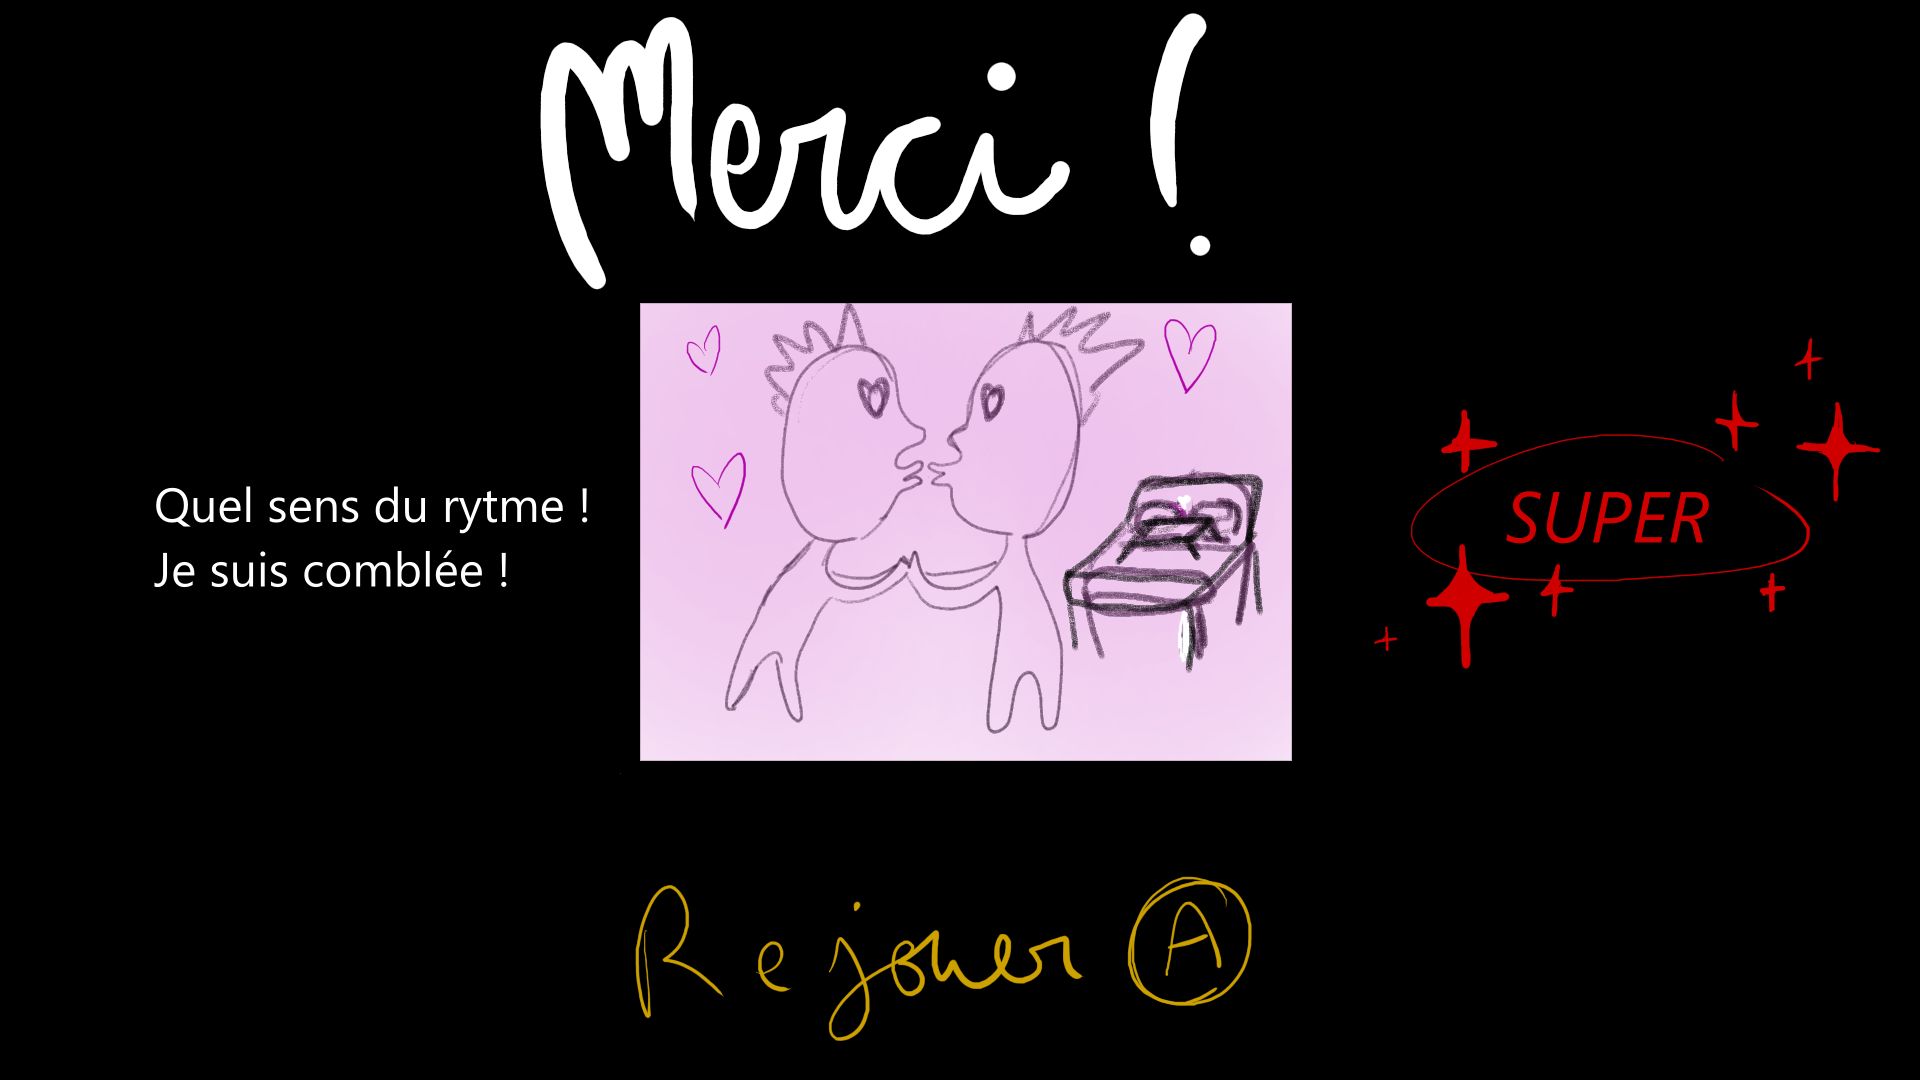 Merci !
Quel sens du rytme !
Je suis comblée !
SUPER
Rejouer A